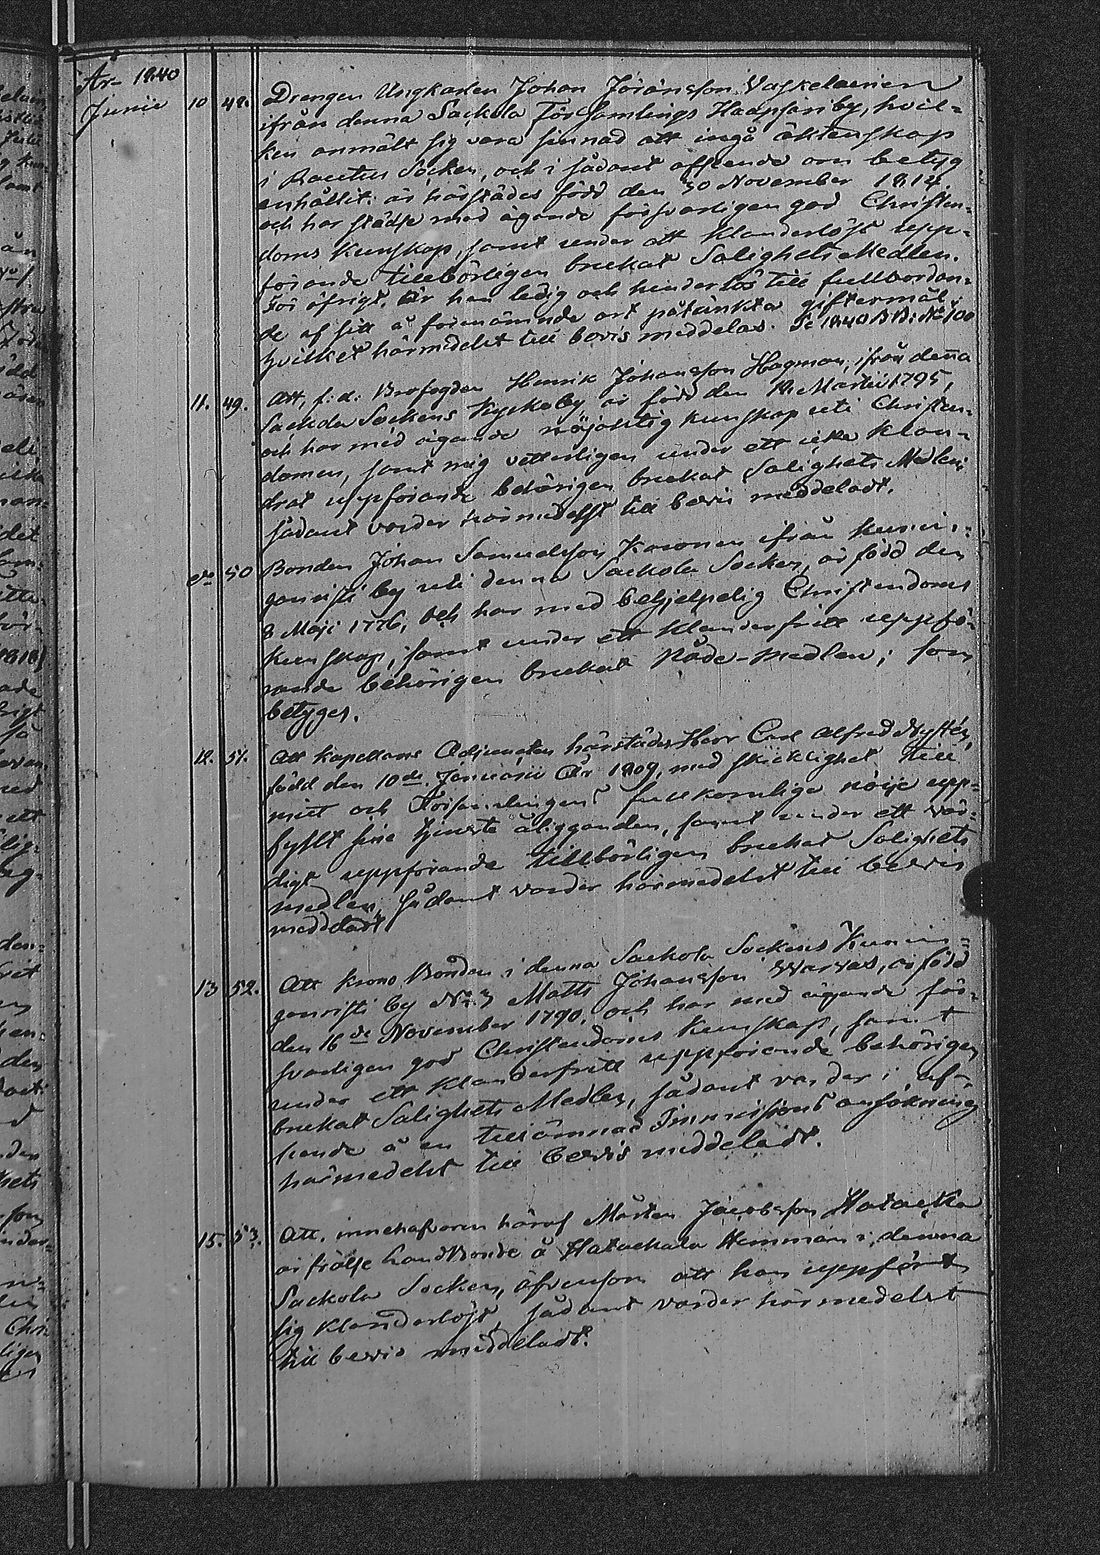 År 1840
Junii
10 48. Drengen Ungkarlen Johan Jöransson Vaskelainen
ifrån denna Sackola Församlings Haapsari by, hvil-
ken anmält sig vara sinnad att ingå äktenskap
i Rautus Socken, och i sådant afseende om betyg
enhållit: är härstädes född den 30 November 1814,
och har städse med ägande försvarligen god Christen-
doms kunskap, samt under ett klanderlöst upp-
förande tillbörligen brukat Salighets Medlen.
För öfrigt är han ledig och hinderlös till fullbordan-
de af sitt å förenämnde ort påtänkta giftermål
hvilket härmedelst till bevis meddelas. 1840 No 100
11. 49. Att, f: d: Brofogden Henrik Johansson Hagman, ifrån denna
Sackola Sockens by är född den Martii 1795,
och har med ägande nöjaktig kunskap uti Christen-
domen, samt mig vetterligen under ett icke klan-
drat uppförande behörigen brukat Salighets Medlen
sådant varder härmedelst till bevis meddeladt.
do 50 Bonden Johan Samuelsson Karonen ifrån Kunin-
ganristi by uti denna Sackola Socken, är född den
8 Maji 1776, och har med behjelpelig Christendoms
kunskap, samt under ett klanderfritt uppfö-
rande behörigen brukat Nåde-medlen; som
betyges.
12. 51. Att Kapellans Adjuncten härstädes Herr Carl Alfred Nystén,
född den 10de Januarii År 1809, med skicklighet till
mitt och Församlingens fullkomliga nöije upp-
fyllt sine tjenste åligganden, samt under ett vär-
digt uppförande tillbörligen brukat Salighets
medlen, sådant varder härmedelst till bevis
meddeladt
13 52. Att Krono Bonden i denna Sackola Sockens Kunin-
ganristi by No 3 Matts Johansson Warvas, är född
den 16de November 1790, och har med ägande för-
svarligen god Christendoms kunskap, samt
under ett klanderfritt uppförande behörigen
brukat Salighets Medlen, sådant varder i af-
seende å en tillämnad Immissions ansökning
härmedelst till bevis meddeladt.
15. 53. Att, innehafvaren häraf Mårten Jacobsson Hatacka
är frälse Landbonde å Hatackala Hemman i denna
Sackola Socken, äfvensom att han uppfört
sig klanderlöst, sådant varder härmedelst
till bevis meddeladt.